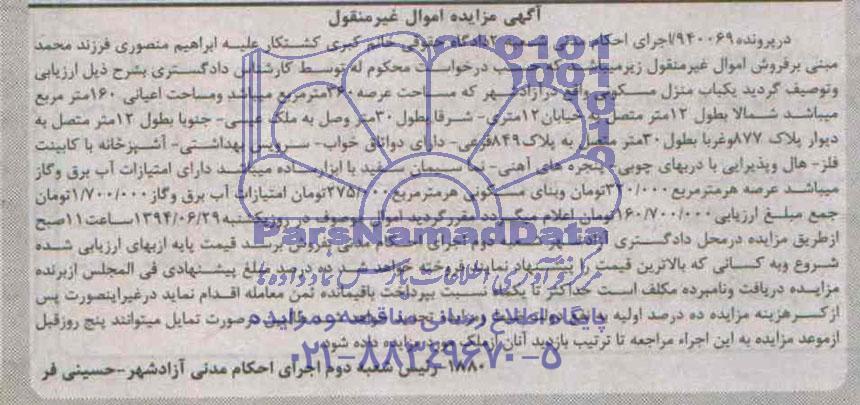 آگهی مزایده اموال غیرمنقول
درپرونده ۹۴۰۰۶۹/اجرای احکام مدنی شعبه ۲دادگاه حقوقی خانم کبری کشتکار علیه ابراهیم منصوری فرزند محمد
مبنی برفروش اموال غیرمنقول زیرمیباشد که حسب درخواست محکوم له توسط کارشناس دادگستری بشرح ذیل ارزیابی
وتوصیف گردید یکباب منزل مسکونی واقع درآزادشهر که مساحت عرصه ۳۶۰مترمربع میباشد ومساحت اعیانی ۱۶۰متر مربع
میباشد شمالا بطول ۱۲متر متصل به خیابان۱۲متری- شرقا بطول ۳۰متر وصل به ملک عیسی- جنوبا بطول ۱۲متر متصل به
دیوار پلاک ۸۷۷وغربا بطول ۳۰متر متصل به پلاک۸۴۹فرعی- دارای دواتاق خواب- سرویس بهداشتی- آشپزخانه با کابینت
فلز- هال وپذیرایی با دربهای چوبی- پنجره های آهنی- نما سیمان سفید با ابزار ساده میباشد دارای امتیازات آب برق وگاز
میباشد عرصه هرمترمربع ۳۲۰/۰۰۰تومان وبنای مسکونی هرمترمربع ۲۷۵/۰۰۰تومان امتیازات آب برق وگاز ۱/۷۰۰/۰۰۰تومان
جمع مبلغ ارزیابی ۱۶۰/۷۰۰/۰۰۰تومان اعلام میگردد مقررگردید اموال موصوف در روزیکشنبه ۱۳۹۴/۰۶/۲۹ساعت ۱۱صبح
ازطریق مزایده درمحل دادگستری آزادشهر شعبه دوم اجرای احکام مدنی بفروش برسد قیمت پایه ازبهای ارزیابی شده
شروع وبه کسانی که بالاترین قیمت را پیشنهاد نمایند فروخته خواهد شد ده درصد مبلغ پیشنهادی فی المجلس ازبرنده
مزایده دریافت ونامبرده مکلف است حداکثر تا یکماه نسبت بپرداخت باقیمانده ثمن معامله اقدام نماید درغیراینصورت پس
ازکسرهزینه مزایده ده درصد اولیه به نفع دولت ضبط ومزایده تجدید خواهد شد. طالبین درصورت تمایل میتوانند پنج روزقبل
ازموعد مزایده به این اجراء مراجعه تا ترتیب بازدید آنان ازملک مورد مزایده داده شود.
۱۸۸۰- رئیس شعبه دوم اجرای احکام مدنی آزادشهر-حسینی فر
ParsNamadData
مرکز فرآوری اطلاعات پارس نماد داده ها
پایگاه اطلاع رسانی مناقصه و مزایده
۰۲۱-۸۸۳۴۹۶۷۰-۵